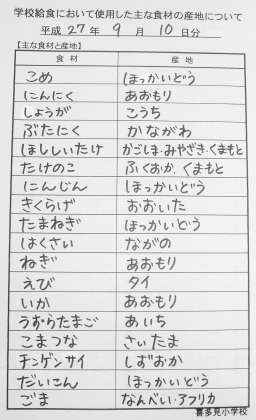 学校給食において使用した主な食材の産地について
平成 27 年 9 月 10 日分
【主な食材と産地】
食材 産地
こめ ほっかいどう
にんにく あおもり
しょうが こうち
ぶたにく かながわ
ほししいたけ かごしま・みやざき・くまもと
たけのこ ふくおか、くまもと
にんじん ほっかいどう
きくらげ おおいた
たまねぎ ほっかいどう
はくさい ながの
ねぎ あおもり
えび タイ
いか あおもり
うずらたまご あいち
こまつな さいたま
チンゲンサイ しずおか
だいこん ほっかいどう
ごま なんべい・アフリカ
喜多見小学校